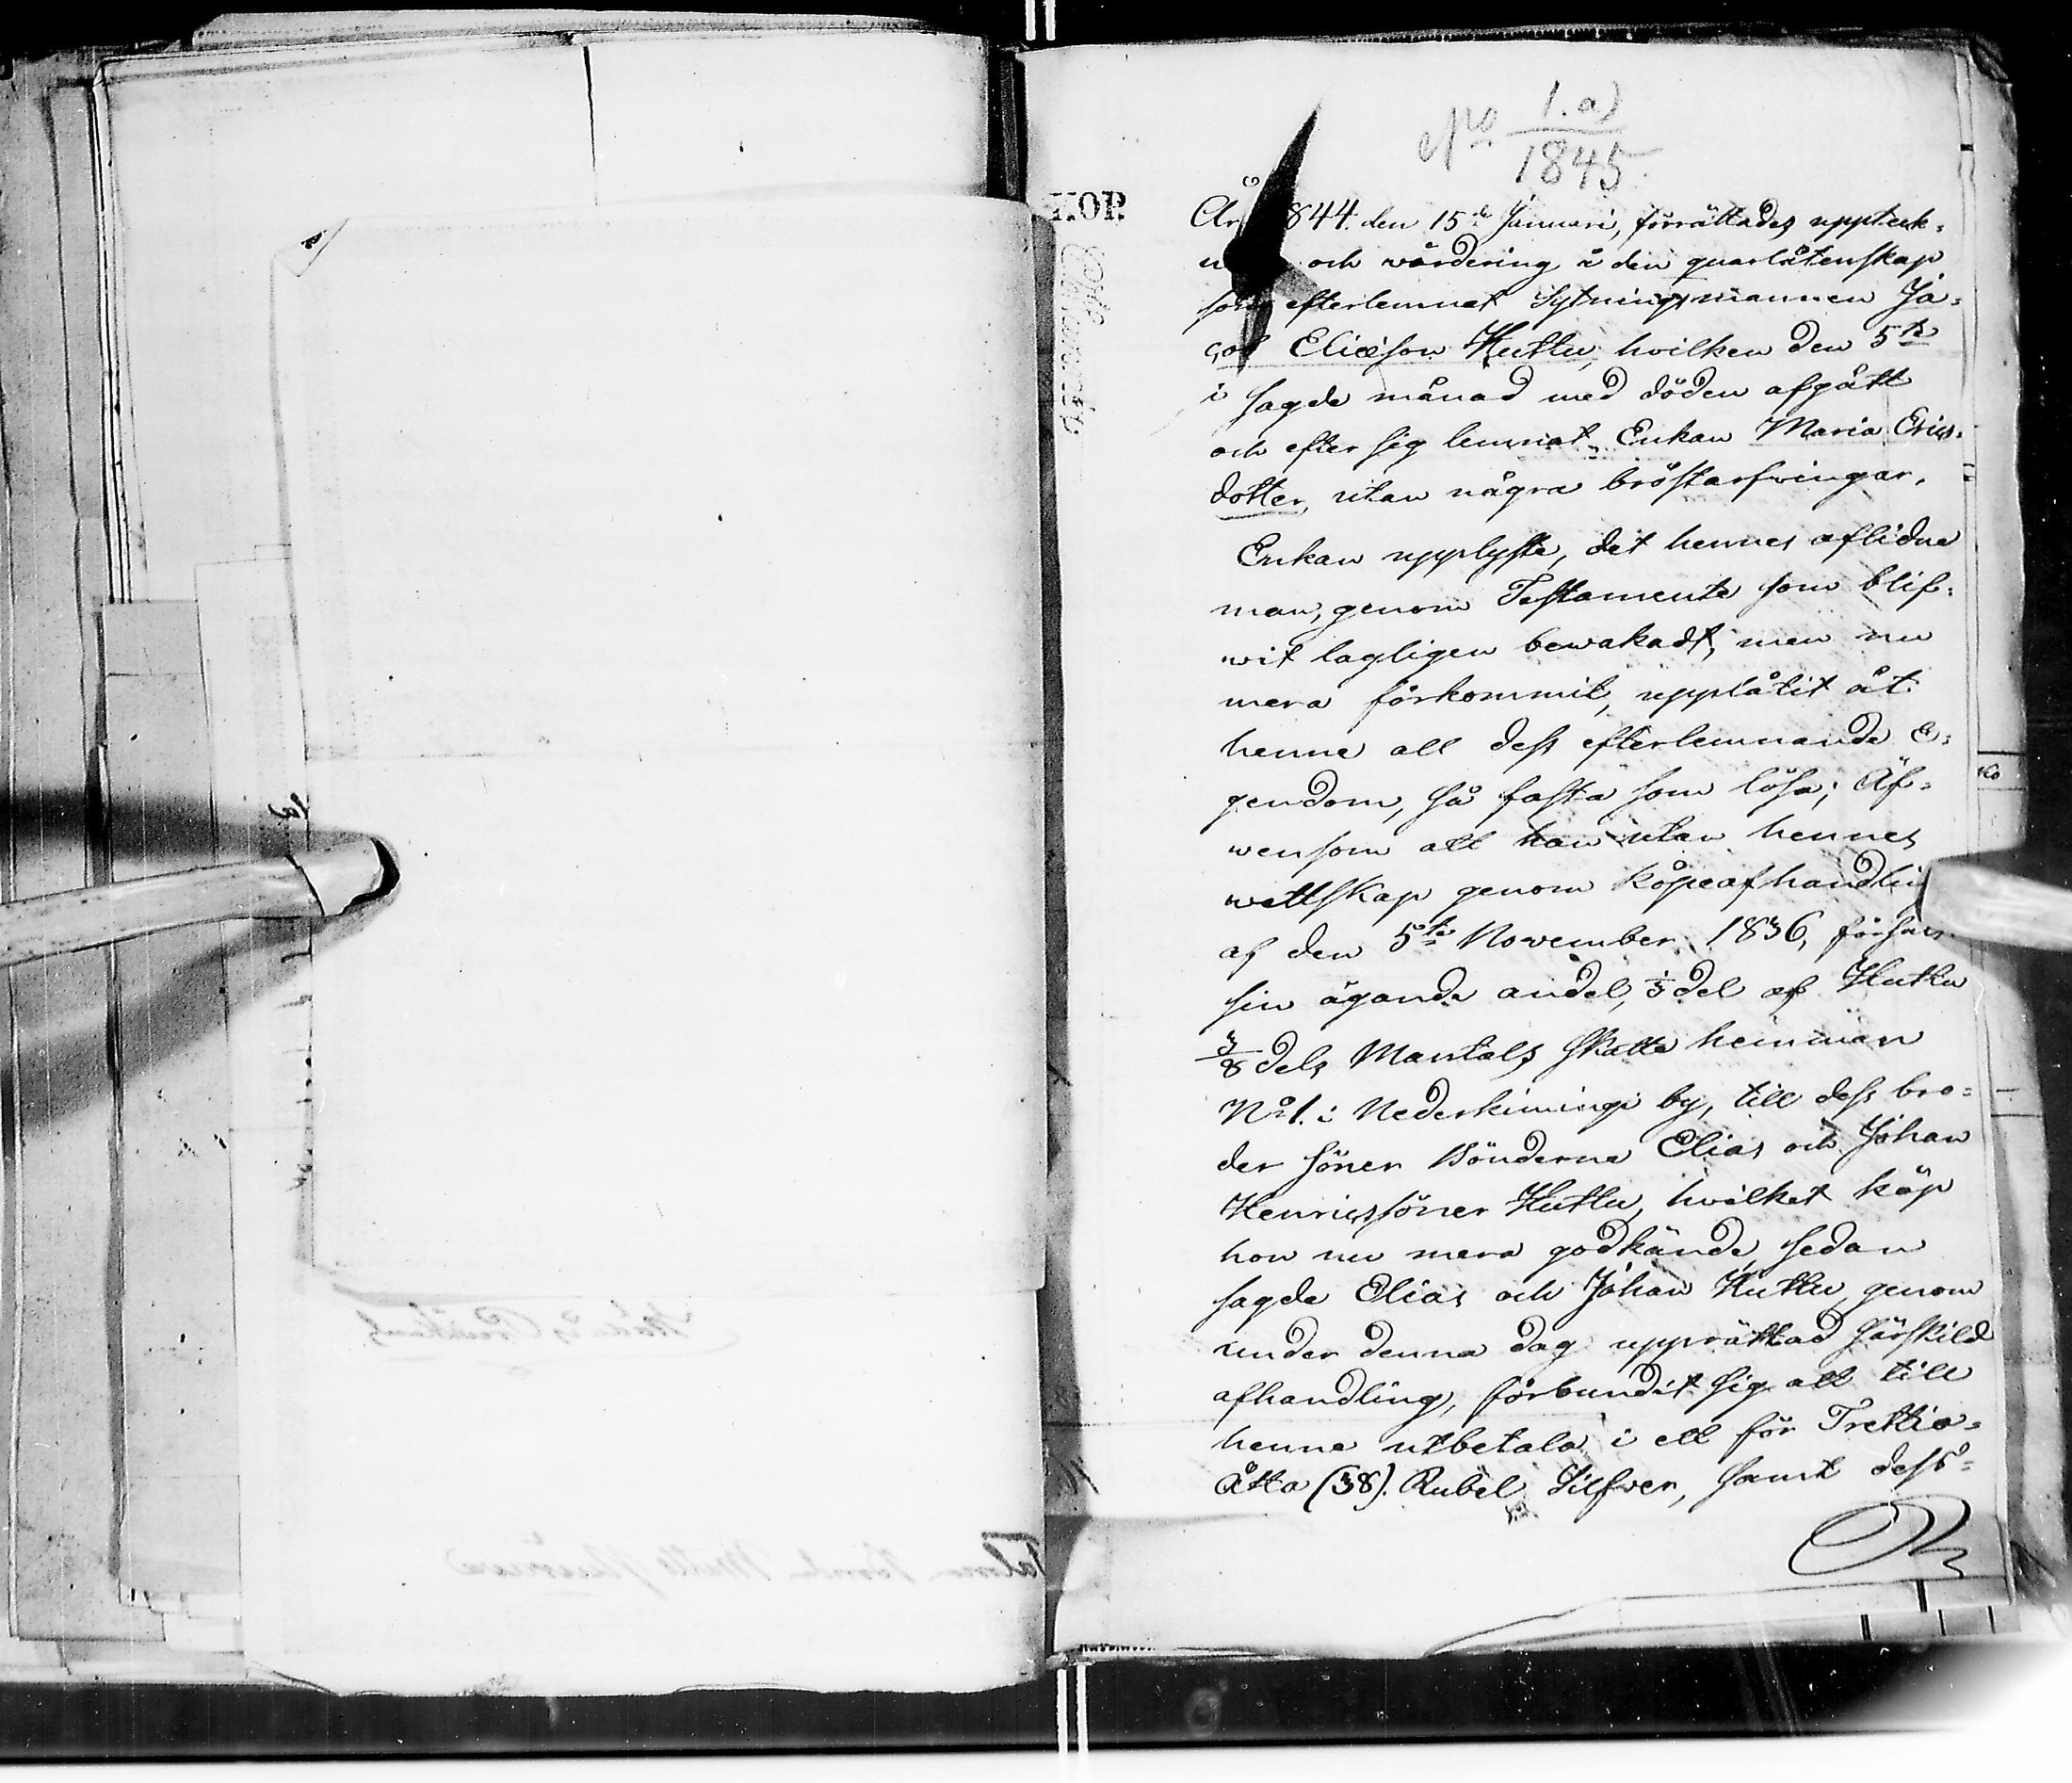 No 1.a)
1845.
KOP.
År 1844. den 15de Januari, förrättades uppteck=
n och värdering å den quarlåtenskap
som efterlemnat Sytningsmannen Ja=
cob Eliæson Huttu, hvilken den 5te
i sagde månad med döden afgått
och efter sig lemnat Enkan Maria Erics=
dotter, utan några bröstarfvingar.
Enkan upplyste, det hennes aflidne
man, genom Testamente som blif=
wit lagligen bewakadt, men nu
mera förkommit, upplåtit åt
henne all dess efterlemnande E=
gendom, så fasta som lösa; Äf=
wensom att han utan hennes
wettskap genom köpeafhandlin
af den 5te November 1836, försål
sin ägande andel, 1/3 del af Huttu
3/8 dels Mantals Skatte hemman
No 1. i Nederkiimingi by, till dess bro=
der söner Bönderne Elias och Johan
Henricssöner Huttu, hvilket köp
hon nu mera godkände, sedan
sagde Elias och Johan Huttu genom
under denna dag upprättad särskild
afhandling, förbundit sig att till
henne utbetala i ett för Trettio=
åtta (38). Rubel Silfver, samt dess=